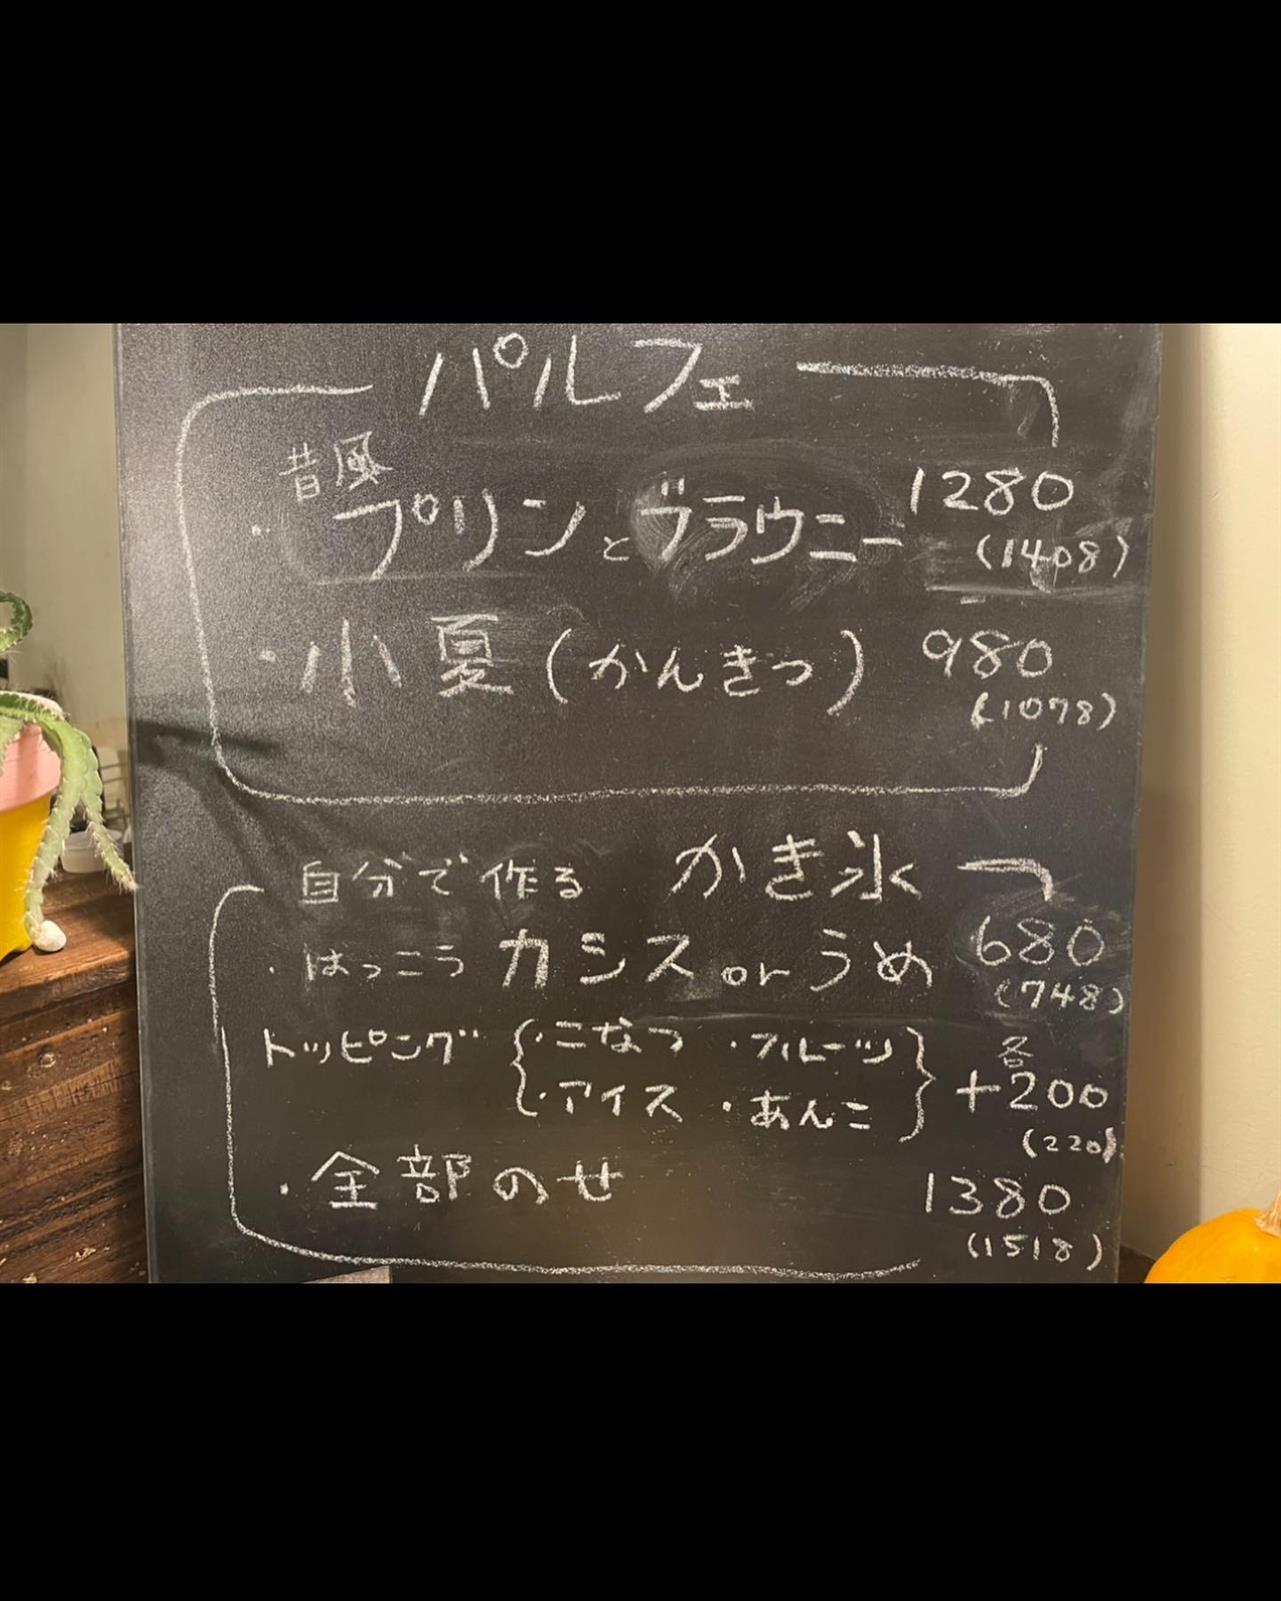 パルフェ
昔風
・プリンとブラウニー 1280
(1408)
・小夏(かんきつ) 980
(1078)
自分で作る かき氷
・はっこう カシス or うめ 680
(748)
トッピング {・こなつ ・フルーツ 各
・アイス ・あんこ} +200
(220)
・全部のせ 1380
(1518)